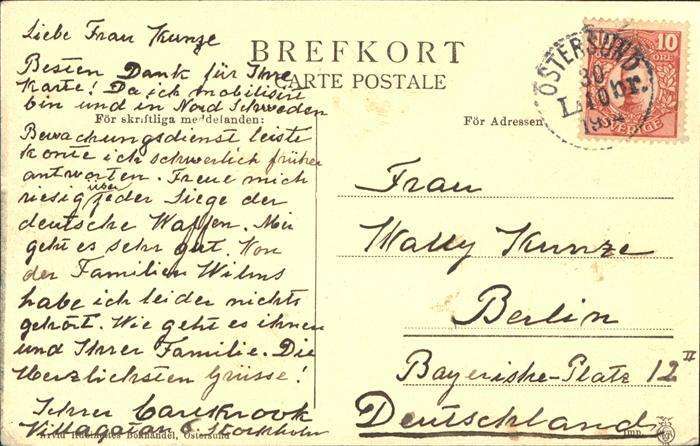 Liebe Frau Kunze
Besten Dank für Ihre
Karte! Da ich mobilisirt
bin und in Nord Schweden
För skriftliga meddelanden:
Bewachungsdienst leiste
konte ich schwerlich früher
antworten. Freue mich
riesig über jeder Siege der
deutsche Waffen. Mir
geht es sehr gut. Von
der Familien Wilms
habe ich leider nichts
gehört. Wie geht es ihnen
und Ihrer Familie. Die
Herzlichsten Grüsse!
Ihrer
Villagatan 6. Stockholm
Bokhandel, Östersund
BREFKORT
CARTE POSTALE
För Adressen
ÖSTERSUND
30
10
ÖRE
SVERIGE
Frau
Wally Kunze
Berlin
Bayerishe-Platz 12 II
Deutschland
Imp.